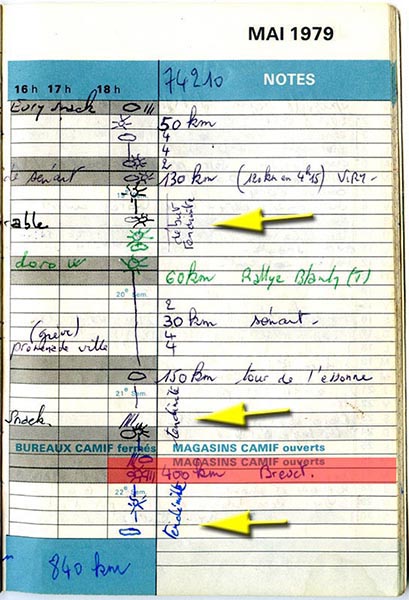 MAI 1979
16 h 17 h 18 h 74210 NOTES
Evry snack
50 km
4
4
2
sénart 130 km (120 km en 4h15) VIRY.
début tendinite
rable
doro w
60 km Rallye Blandy (T)
20e sem.
2
30 km sénart.
(grève) 4
promenade ville 4
150 km tour de l'essonne
21e sem.
tendinité
Snack.
BUREAUX CAMIF fermés MAGASINS CAMIF ouverts
MAGASINS CAMIF ouverts
400 km Brevet.
22e sem.
tendinité
840 km